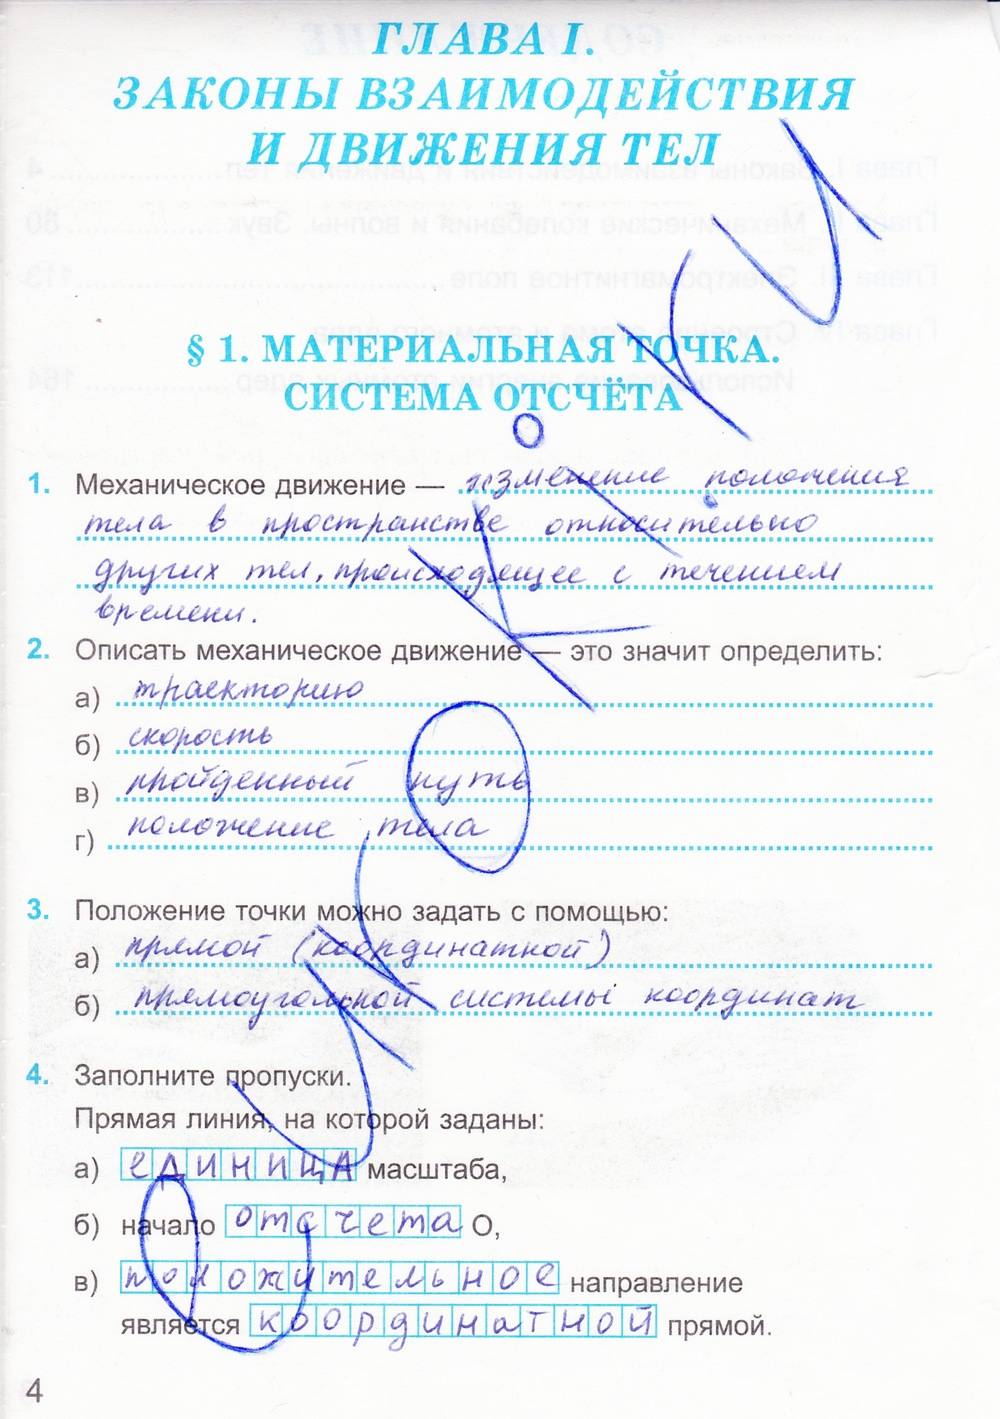 ГЛАВА I.
ЗАКОНЫ ВЗАИМОДЕЙСТВИЯ
И ДВИЖЕНИЯ ТЕЛ
§ 1. МАТЕРИАЛЬНАЯ ТОЧКА.
СИСТЕМА ОТСЧЁТА
1. Механическое движение — изменение положения
тела в пространстве относительно
других тел, происходящее с течением
времени.
2. Описать механическое движение — это значит определить:
а) траекторию
б) скорость
в) пройденный путь
г) положение тела
3. Положение точки можно задать с помощью:
а) прямой (координатной)
б) прямоугольной системы координат
4. Заполните пропуски.
Прямая линия, на которой заданы:
а) единица масштаба,
б) начало отсчета О,
в) положительное направление
является координатной прямой.
4